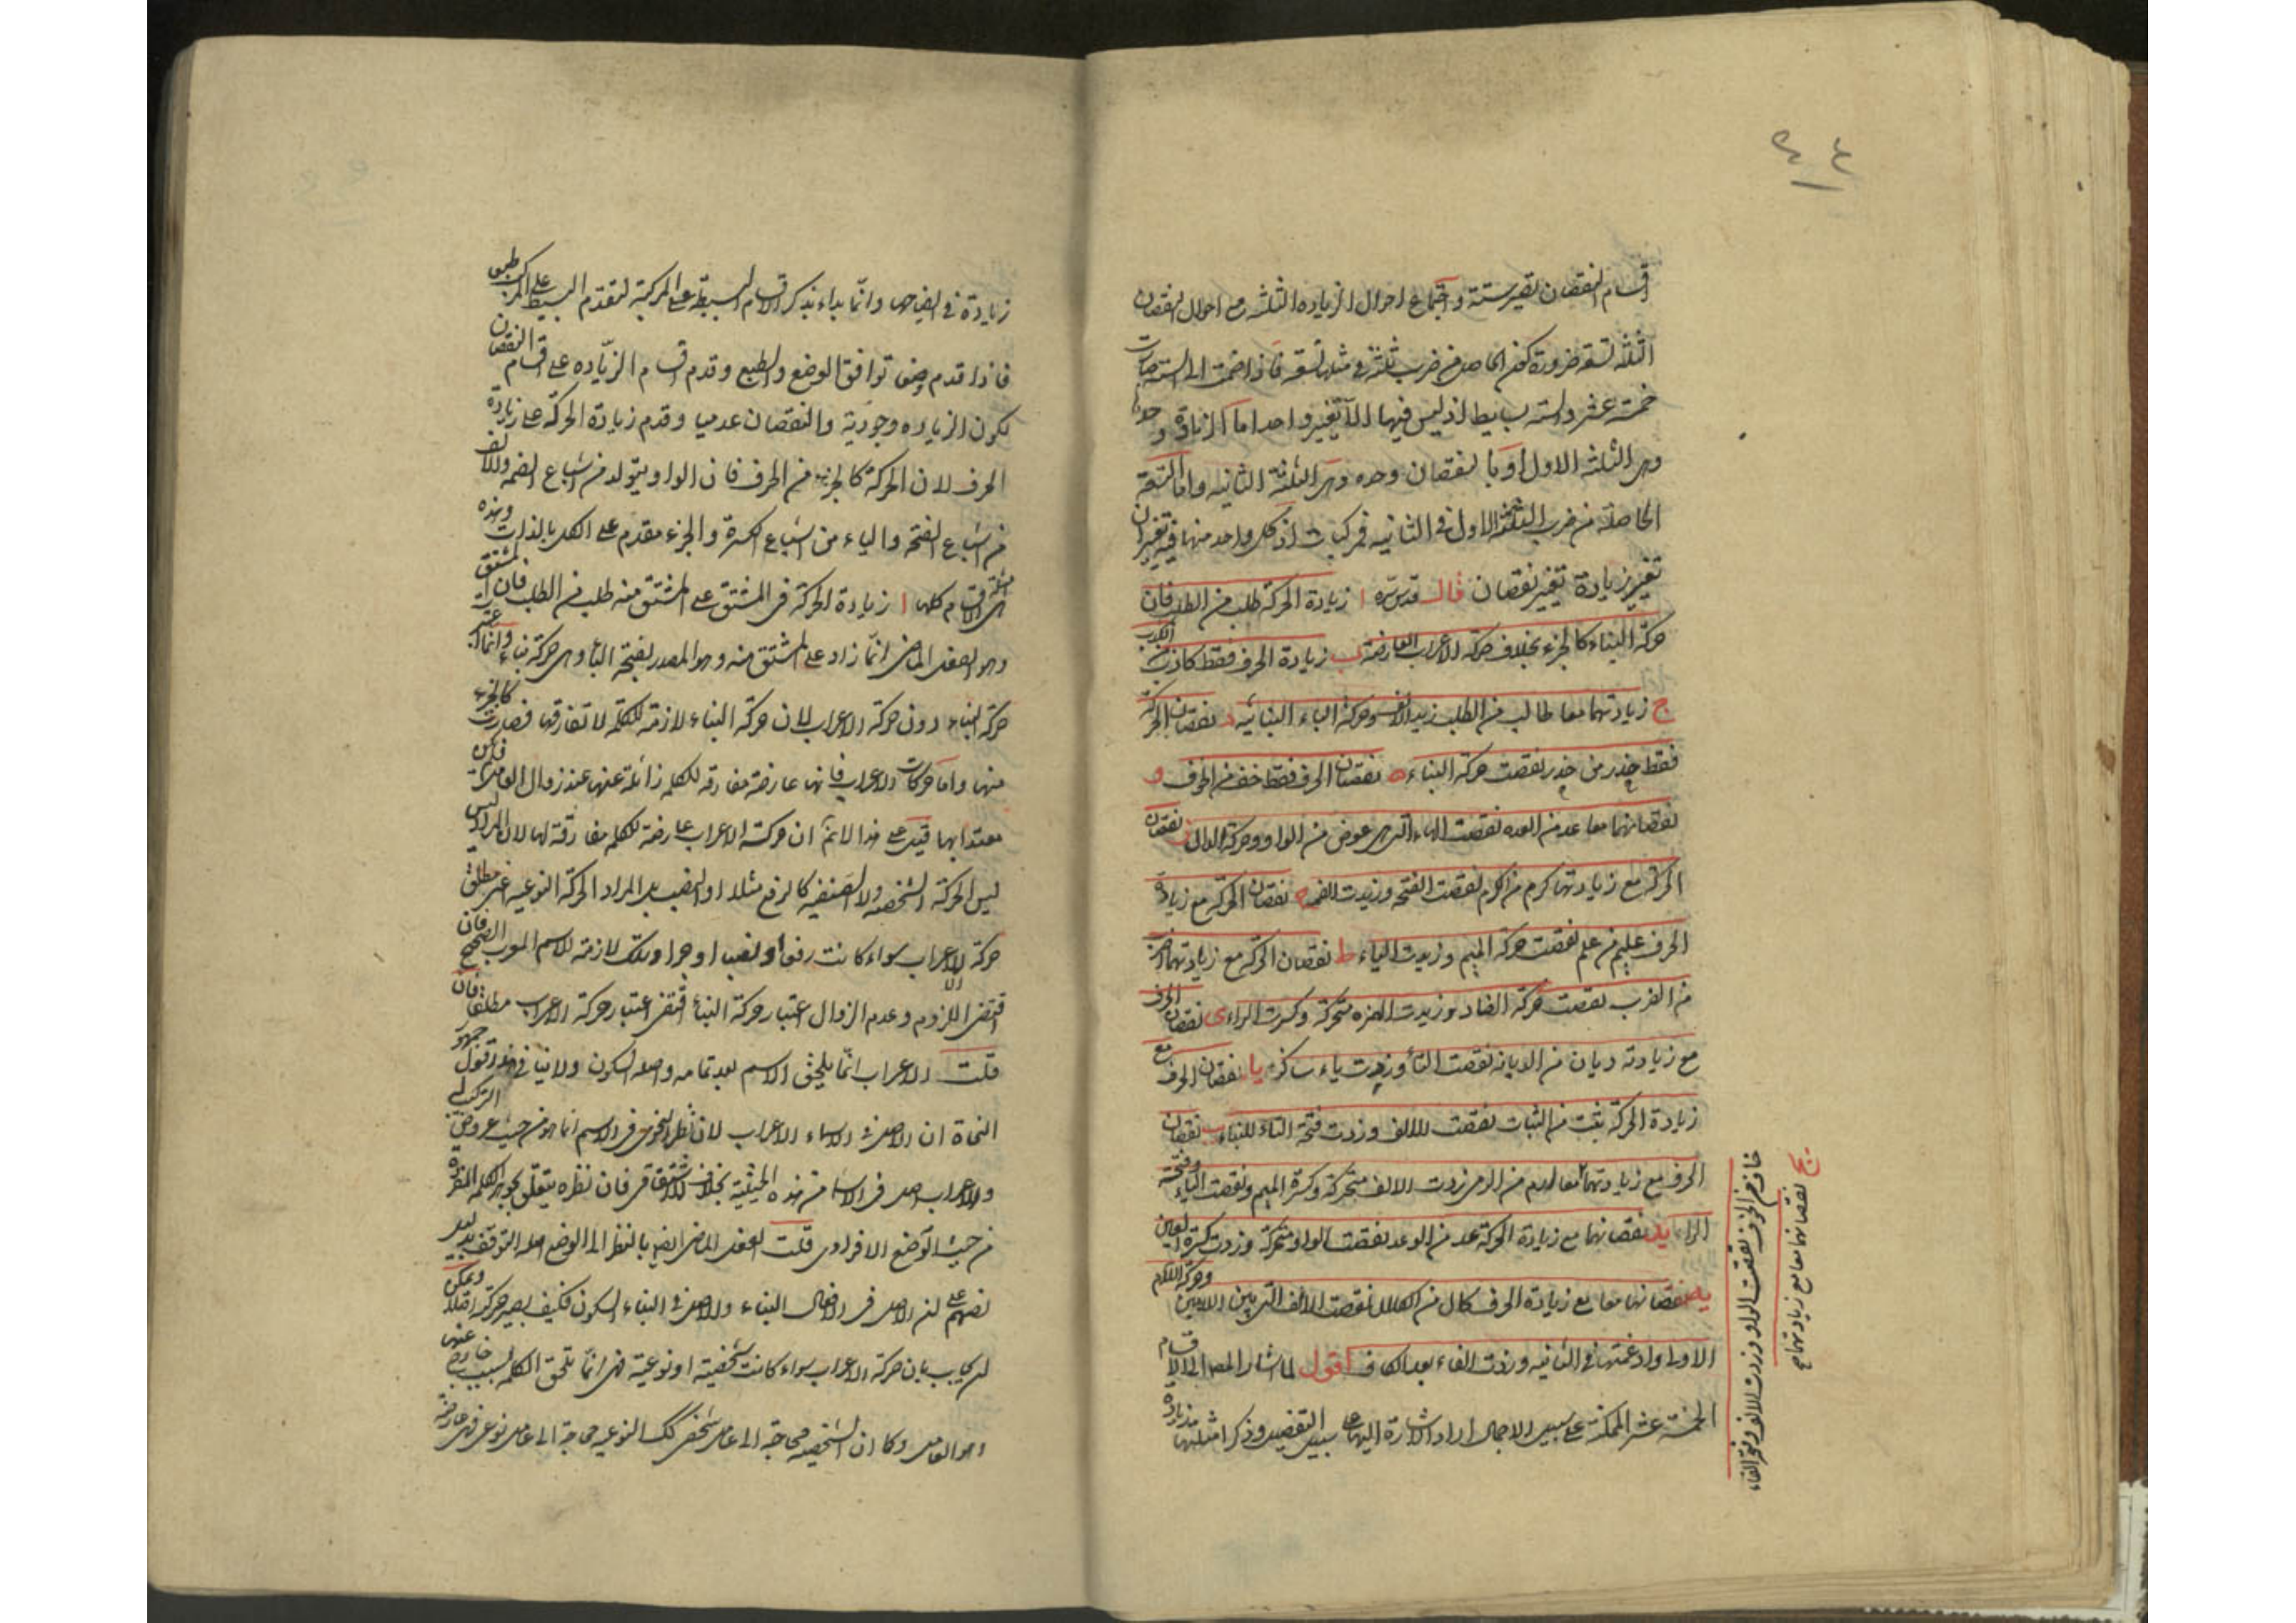 قسام النقصان تصير ستة واجتماع احوال الزيادة الثلثة مع احوال النقصان
الثلثة تسعة ضرورة كون الحاصل من ضرب ثلثة في مثلها تسعة فاذا ضمت الى الستة صارت
خمسة عشر والستة بسيط اذ ليس فيها الا تغير واحد اما الزيادة وحدها
وهي الثلثة الاول او بالنقصان وحده وهي الثلثة الثانية واما التسعة
الحاصلة من ضرب الثلثة الاول في الثانية فمركبات اذ كل واحد منها فيه تغيران
تغير زيادة تغير نقصان قال قدس سره ا زيادة الحركة طلب من الطلب فان
حركة البناء كالجزء بخلاف حركة الاعراب العارضة ب زيادة الحرف فقط كاذب من الكذب
ج زيادتهما معا طالب من الطلب زيد الالف وحركة الباء البنائية د نقصان الحركة
فقط حذر من حذر نقصت حركة البناء ه نقصان الحرف فقط خف من الخوف و
نقصانهما معا عد من العدة نقصت الهاء التي هي عوض من الواو وحركة الدال ز نقصان
الحركة مع زيادتها كرم من الكرم نقصت الفتحة وزيدت الضمة ح نقصان الحركة مع زيادة
الحرف عليم من علم نقصت حركة الميم وزيدت الياء ط نقصان الحركة مع زيادتهما اضرب
من الضرب نقصت حركة الضاد وزيدت الهمزة متحركة وكسرت الراء ى نقصان الحرف
مع زيادته ديان من الديانة نقصت التاء وزيدت ياء ساكنة يا نقصان الحرف مع
زيادة الحركة بنت من النبات نقصت الالف وزدت فتحة التاء للبناء يب نقصان
الحرف مع زيادتهما معا ارم من الرمي زدت الالف متحركة وكسرة الميم ونقصت الياء وفتحة
الراء يد نقصانهما مع زيادة الحركة عد من الوعد نقصت الواو متحركة وزدت كسرة العين
يه نقصانهما معا مع زيادة الحرف كال من الكلال نقصت الالف التي بين اللامين وحركة اللام
الاولى وادغمتها في الثانية وزدت الفاء بعد الكاف اقول لما اشار المص الى الاقسام
الخمسة عشر الممكنة على سبيل الاجمال اراد الاشارة اليها على سبيل التفصيل وذكر امثلتها
يج نقصانهما معا مع زيادتهما مع
خاف من الخوف نقصت الواو وزدت الالف وفتح الفاء
زيادة في الايضاح وانما بداء بذكر الاقسام البسيطة على المركبة لتقدم البسيط على المركب طبعا
فاذا قدم وضعا توافق الوضع والطبع وقدم اقسام الزيادة على اقسام النقصان
لكون الزيادة وجودية والنقصان عدميا وقدم زيادة الحركة على زيادة
الحرف لان الحركة كالجزء من الحرف فان الواو يتولد من اشباع الضمة والالف
من اشباع الفتحة والياء من اشباع الكسرة والجزء مقدم على الكل بالذات وهذه
امثلة الاقسام كلها ا زيادة الحركة في المشتق على المشتق منه طلب من الطلب فان المشتق
وهو الفعل الماضي انما زاد على المشتق منه وهو المصدر بفتحة الباء وهي حركة بناء وانما اعتبرت
حركة البناء دون حركة الاعراب لان حركة البناء لازمة للكلمة لا تفارقها فصارت كالجزء
منها واما حركات الاعراب فانها عارضة مفارقة للكلمة زائلة عنها عند زوال العوامل فلم يكن
معتدا بها فان قيل على هذا لا نم ان حركة الاعراب عارضة للكلمة مفارقة لها لان المراد ليس
ليس الحركة الشخصية ولا الصنفية كالرفع مثلا او النصب بل المراد الحركة النوعية اعني مطلق
حركة الاعراب سواء كانت رفعا او نصبا او جرا وتلك لازمة للاسم المعرب الصحيح فان
اقتضى اللزوم وعدم الزوال اعتبار حركة البناء اقتضى اعتبار حركة الاعراب مطلقا فان
قلت الاعراب انما يلحق الاسم بعد تمامه واصله السكون ولا ينافي هذا قول جمهور
النحاة ان الاصل في الاسماء الاعراب لان نظر النحوي في الاسم انما هو من حيث عروض التركيب له
والاعراب اصل في الاسماء من هذه الحيثية بخلاف الاشتقاقي فان نظره يتعلق بجوهر الكلمة المفردة
من حيث الوضع الافرادي قلت الفعل الماضي ايضا بالنظر الى الوضع اصله التوقف بعد
نصهم على ان الاصل في الافعال البناء والاصل في البناء السكون فكيف يصير حركة اصلا ويمكن
ان يجاب بان حركة الاعراب سواء كانت شخصية او نوعية فهي انما تلحق الكلمة بسبب خارج عنها
وهو العامل وكما ان الشخصية محتاجة الى عامل شخصي كذلك النوعية محتاجة الى عامل نوعي فهي عارضة